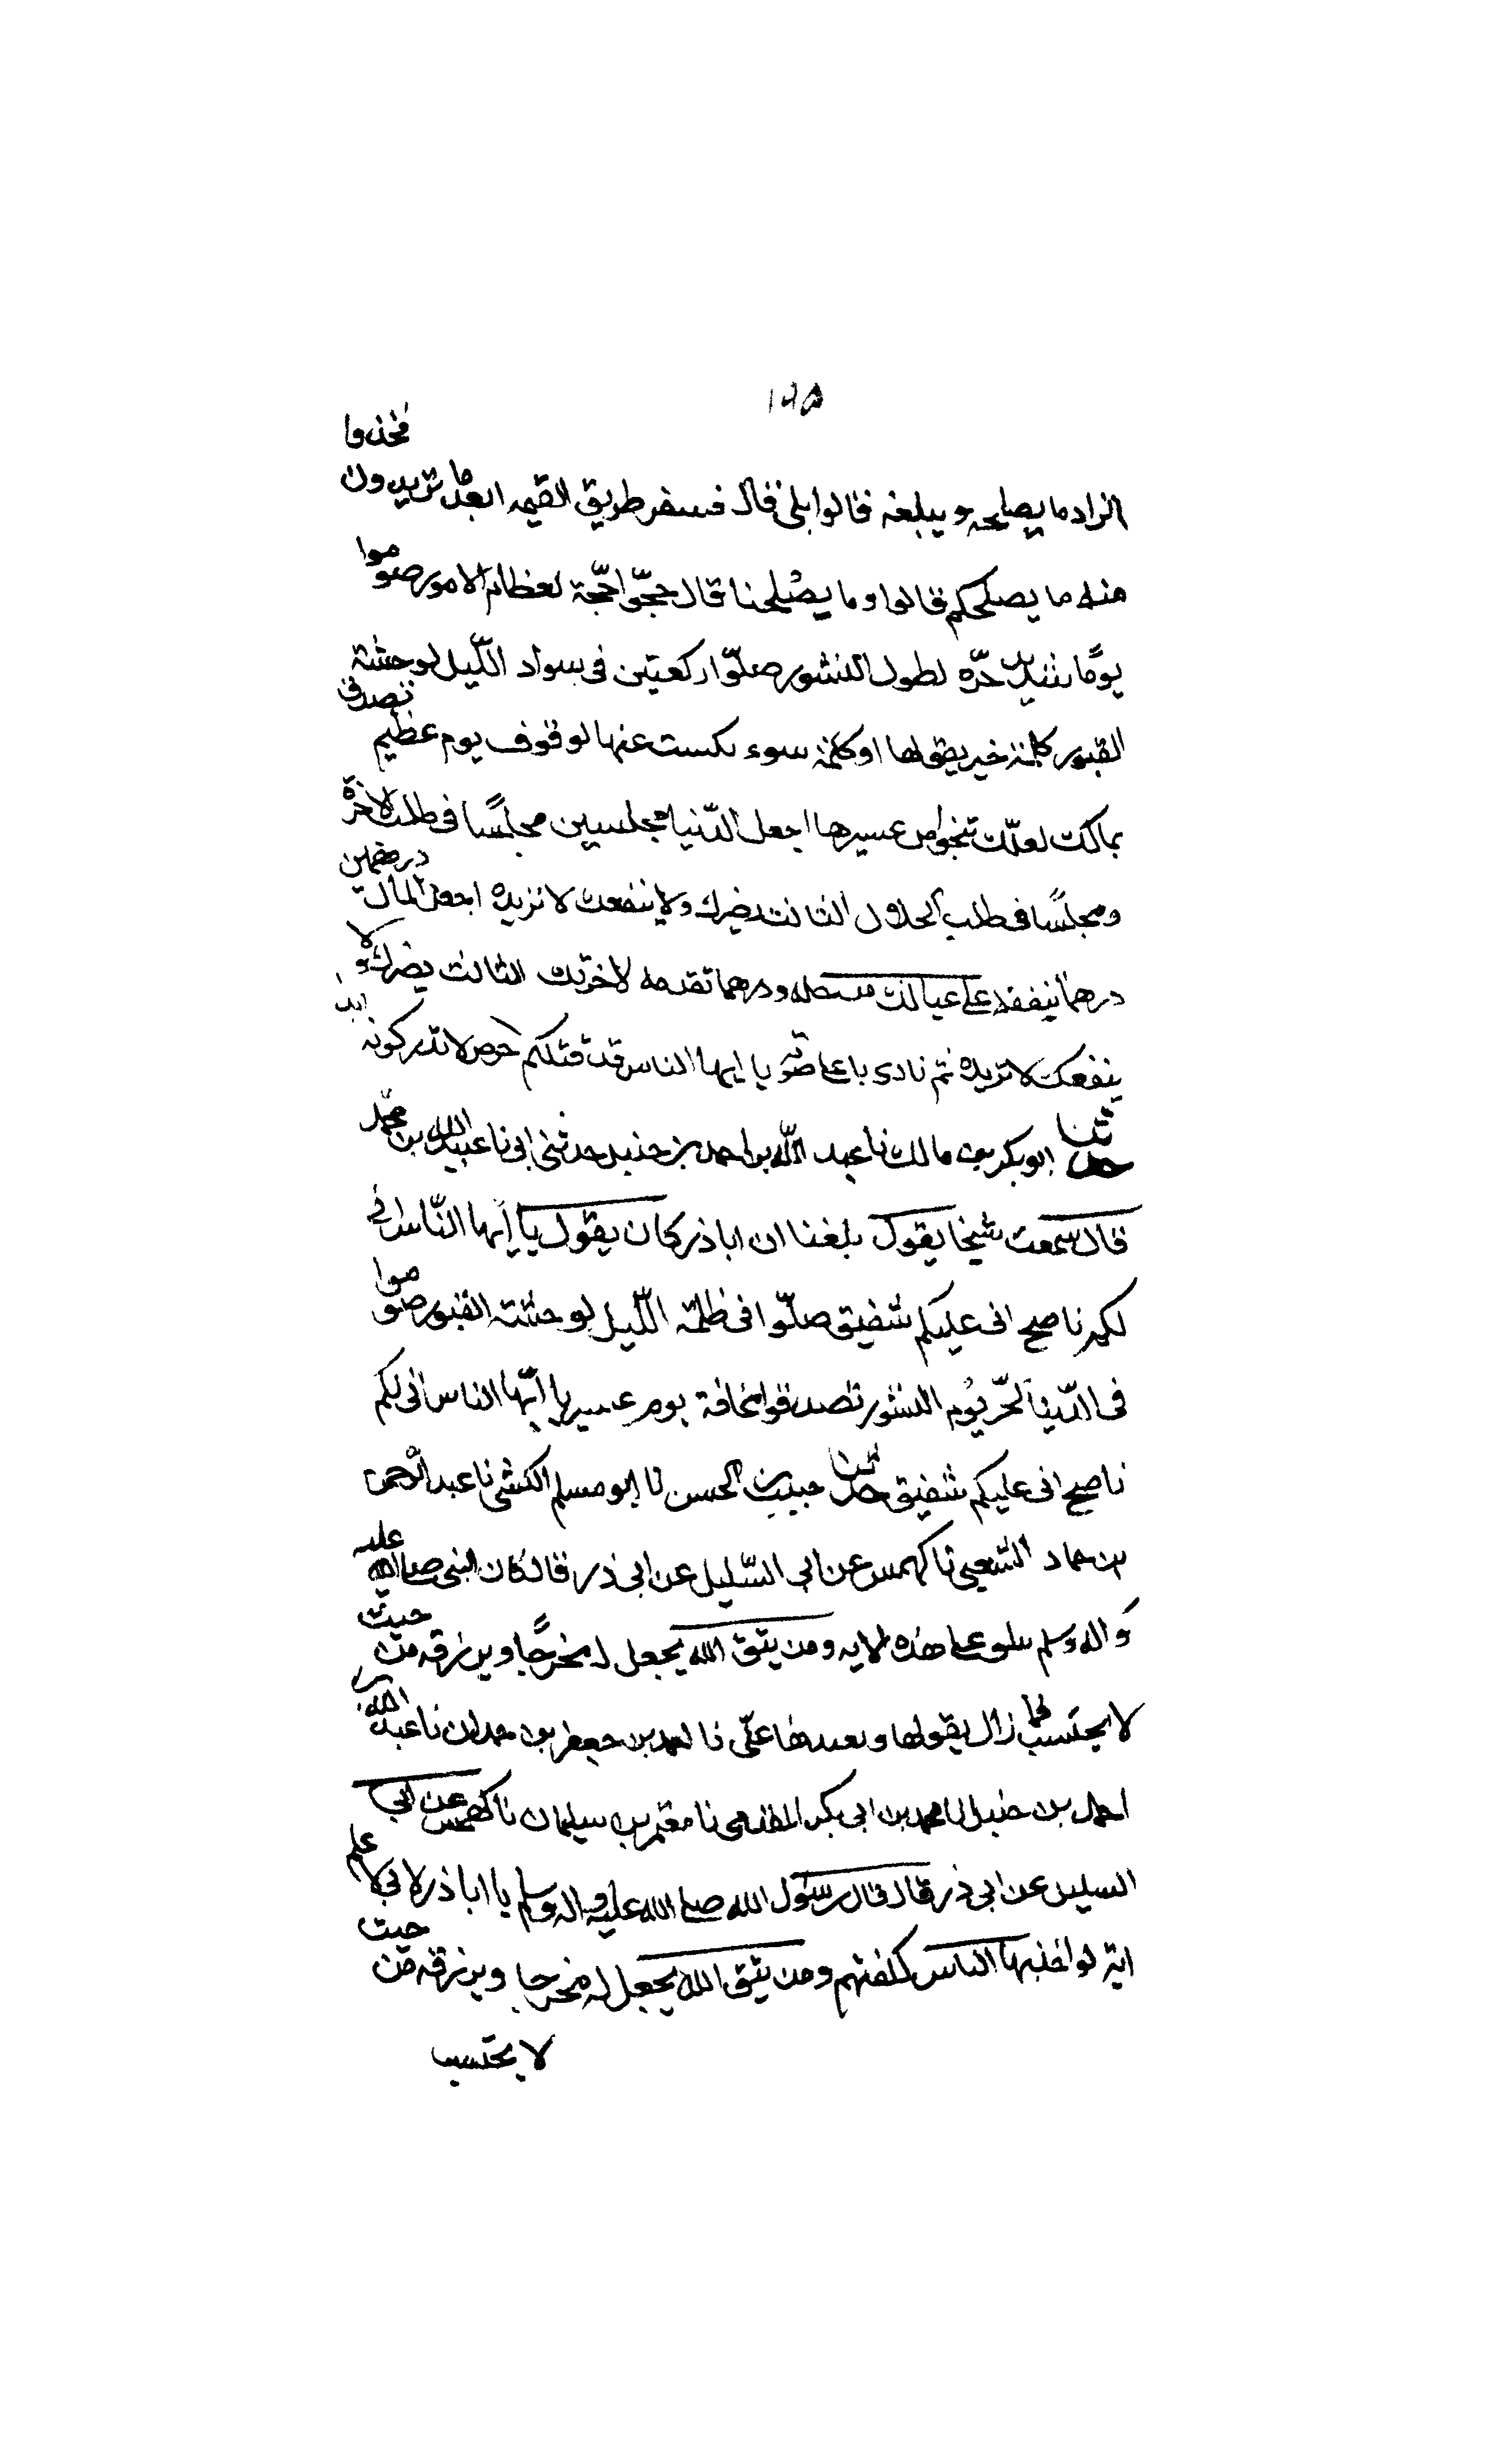 ١٢٥
الزاد ما يصلحه ويبلغه قالوا بلى قال فسفر طريق القيمه ابعد ما تريدون فخذوا
منه ما يصلحكم قالوا وما يصلحنا قال حجّوا حجّة لعظام الامور صوموا
يومًا شديد حرّه لطول النشور صلّوا ركعتين فى سواد اللّيل لوحشة
القبور كلمة خير يقولها او كلمة سوء يسكت عنها لوقوف يوم عظيم تصدق
بمالك لعلّك تنجوا من عسيرها اجعل الدّنيا مجلسين مجلسًا فى طلب الاخرة
ومجلسًا فى طلب الحلال الثالث يضرك ولا ينفعك لا تريده اجعل المال درهمين
درهما ينفقه على عيالك من حله ودرهما تقدمه لاخرتك الثالث يضرك ولا
ينفعك لا تريده ثم نادى باعلى صوته يا ايها الناس قد قتلكم حرص لا تدركونه ابدا
حدثنا ابو بكر بن مالك نا عبد الله بن احمد بن حنبل حدثنى ابى نا عبيد الله بن محمّد
قال سمعت شيخا يقول بلغنا ان اباذر كان يقول يا ايها النّاس انى
لكم ناصح انى عليكم شفيق صلّوا فى ظلمة اللّيل لوحشة القبور صوموا
فى الدّنيا لحرّ يوم النشور تصدقوا مخافة يوم عسير يا ايّها الناس انى لكم
ناصح انى عليكم شفيق حدثنا حبيب بن الحسن نا ابو مسلم الكشى نا عبد الرّحمن
بن حماد الشعيثى نا كهمس عن ابى السّليل عن ابى ذر قال كان النبى صلى الله عليه
واله وسلم يتلو على هذه الايه ومن يتق الله يجعل له مخرجًا ويرزقه من حيث
لا يحتسب فما زال يقولها ويعيدها علىّ نا احمد بن جعفر بن حمدان نا عبد الله بن
احمد بن حنبل نا محمد بن ابى بكر المقدمى نا معتمر بن سليمان نا كهمس عن ابى
السليل عن ابى ذر قال قال رسول الله صلى الله عليه واله وسلم يا اباذر لانى لاعلم
اية لو اخذ بها الناس كلفتهم ومن يتق الله يجعل له مخرجا ويرزقه من حيث
لا يحتسب